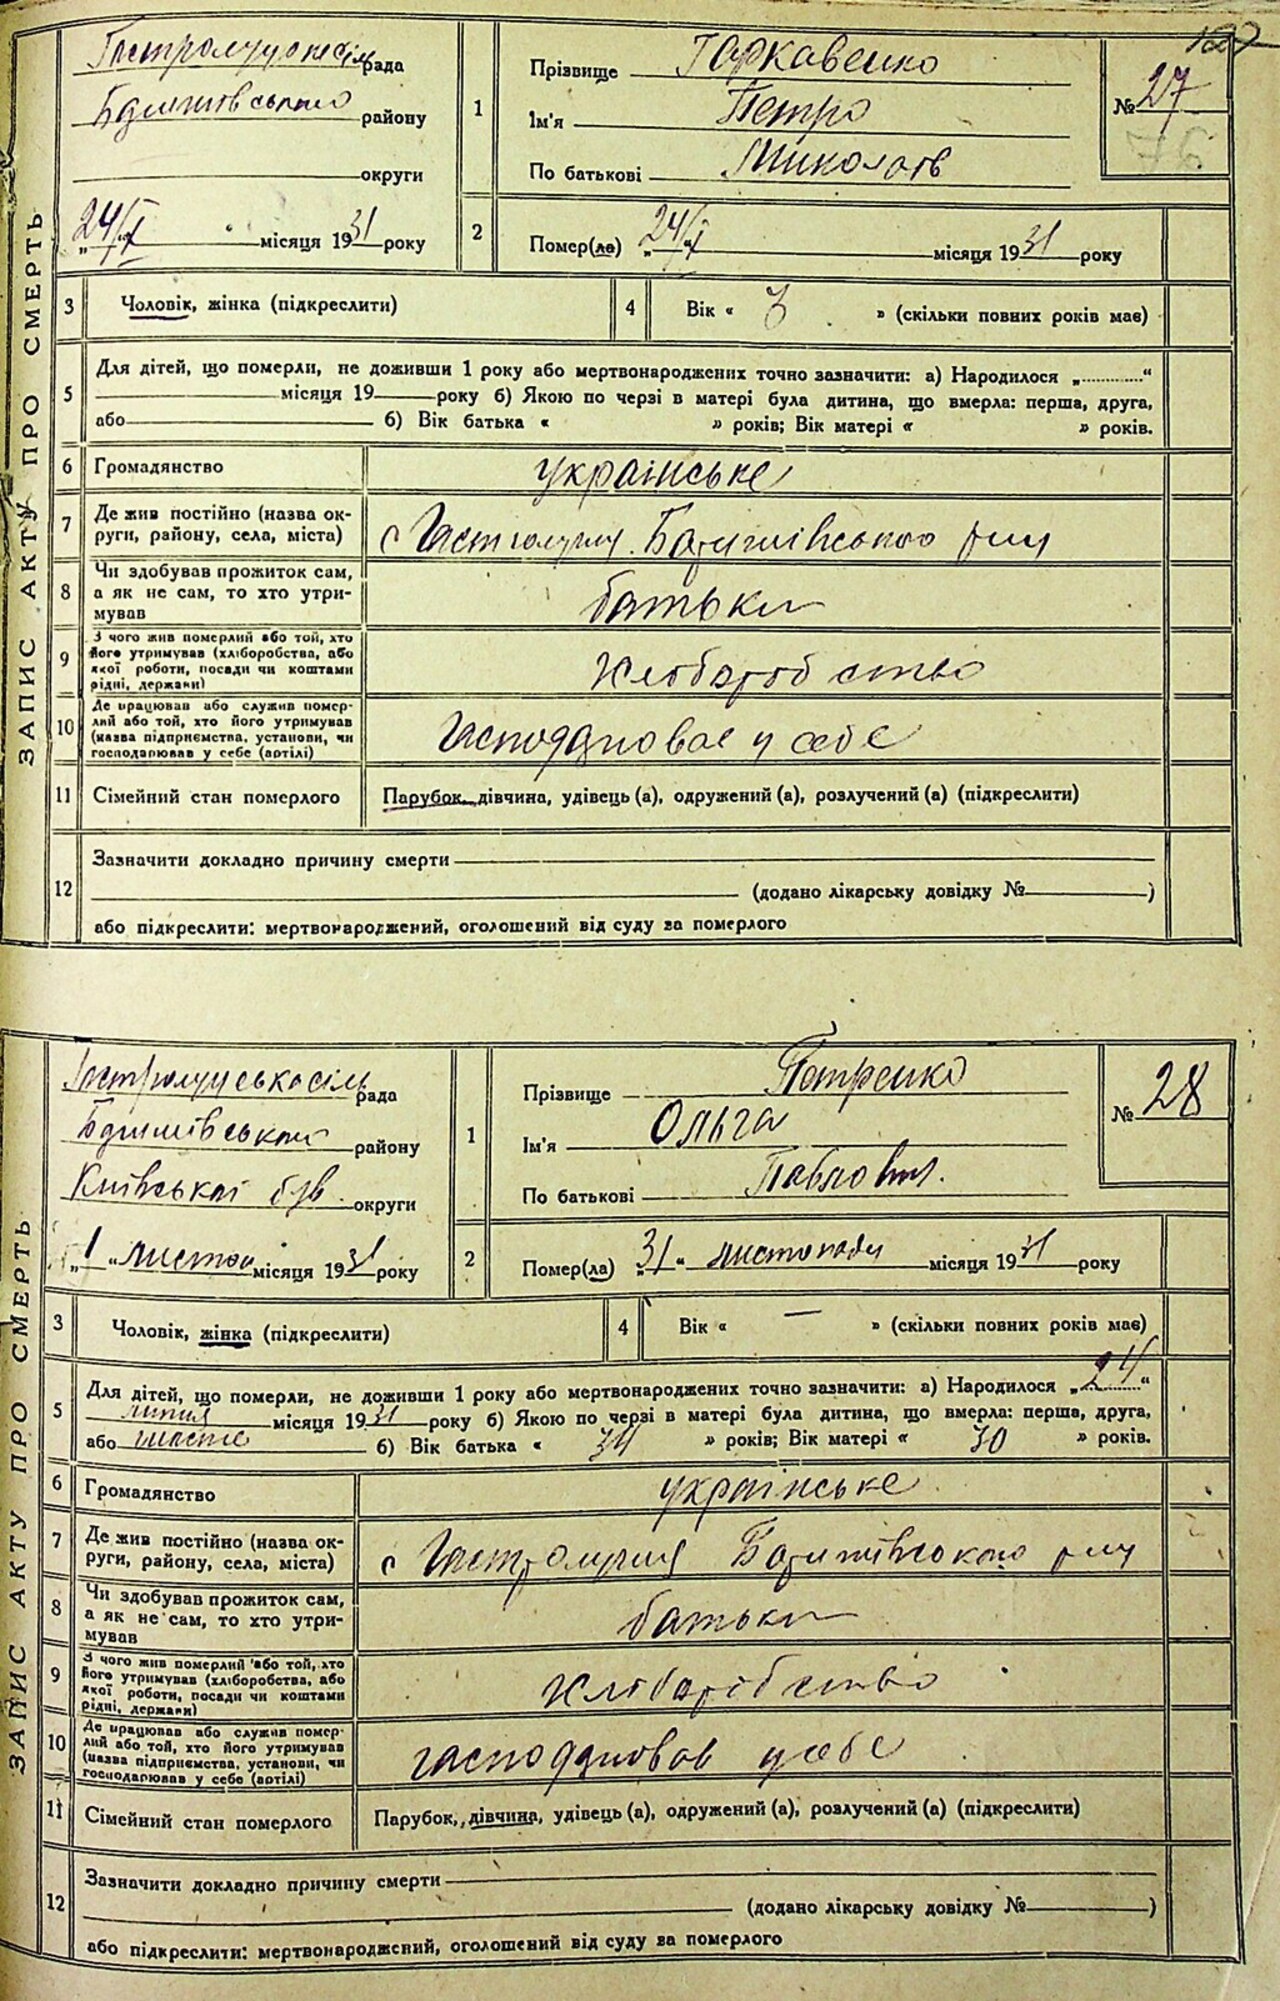 ЗАПИС АКТУ ПРО СМЕРТЬ
рада
району
округи
24/X місяця 1931 року
1
Прізвище Гаркавенко
Ім'я Петро
По батькові Миколаїв
№ 27
2
Помер(ла) 24/X місяця 1931 року
3 Чоловік, жінка (підкреслити)
4 Вік « 3 » (скільки повних років має)
5
Для дітей, що померли, не доживши 1 року або мертвонароджених точно зазначити: а) Народилося „............“
місяця 19 року б) Якою по черзі в матері була дитина, що вмерла: перша, друга,
або б) Вік батька « » років; Вік матері « » років.
6 Громадянство українське
7 Де жив постійно (назва ок-
руги, району, села, міста) с
8 Чи здобував прожиток сам,
а як не сам, то хто утри-
мував батьки
9 З чого жив померлий або той, хто
його утримував (хліборобства, або
якої роботи, посади чи коштами
рідні, держави) хліборобство
10 Де працював або служив помер-
лий або той, хто його утримував
(назва підприємства, установи, чи
господарював у себе (артілі) у себе
11 Сімейний стан померлого Парубок, дівчина, удівець (а), одружений (а), розлучений (а) (підкреслити)
12
Зазначити докладно причину смерти
(додано лікарську довідку № )
або підкреслити: мертвонароджений, оголошений від суду за померлого
ЗАПИС АКТУ ПРО СМЕРТЬ
рада
району
округи
„1“ листоп місяця 1931 року
1
Прізвище Петренко
Ім'я Ольга
По батькові Павловна
№ 28
2
Помер(ла) „31“ листопада місяця 1931 року
3 Чоловік, жінка (підкреслити)
4 Вік « — » (скільки повних років має)
5
Для дітей, що померли, не доживши 1 року або мертвонароджених точно зазначити: а) Народилося „24“
липня місяця 1931 року б) Якою по черзі в матері була дитина, що вмерла: перша, друга,
або шосте б) Вік батька « 34 » років; Вік матері « 30 » років.
6 Громадянство українське
7 Де жив постійно (назва ок-
руги, району, села, міста) с
8 Чи здобував прожиток сам,
а як не сам, то хто утри-
мував батьки
9 З чого жив померлий або той, хто
його утримував (хліборобства, або
якої роботи, посади чи коштами
рідні, держави) хліборобство
10 Де працював або служив помер-
лий або той, хто його утримував
(назва підприємства, установи, чи
господарював у себе (артілі) у себе
11 Сімейний стан померлого Парубок, дівчина, удівець (а), одружений (а), розлучений (а) (підкреслити)
12
Зазначити докладно причину смерти
(додано лікарську довідку № )
або підкреслити: мертвонароджений, оголошений від суду за померлого